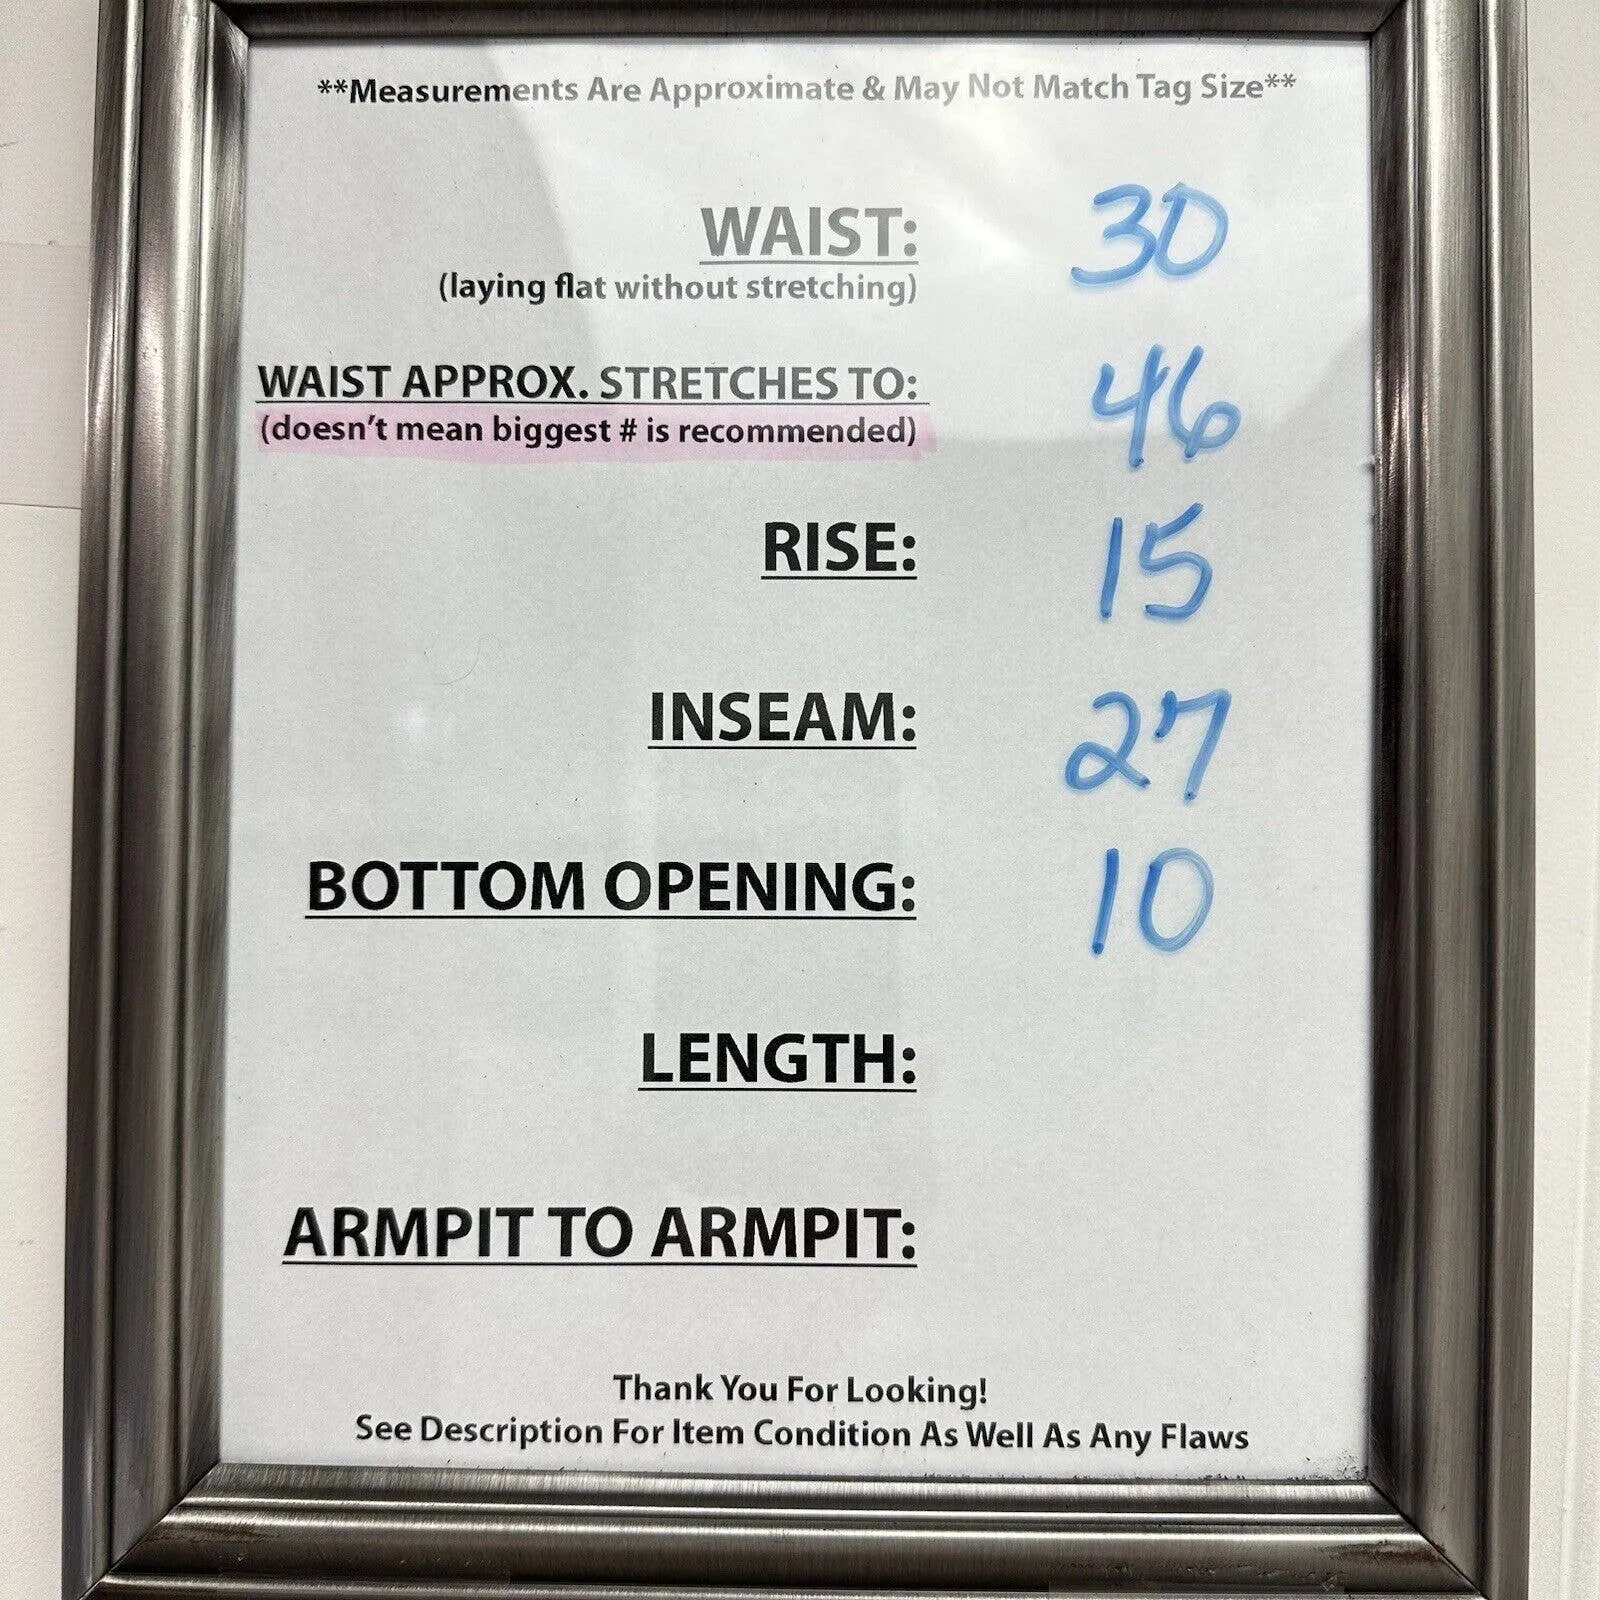 **Measurements Are Approximate & May Not Match Tag Size**
WAIST: 30
(laying flat without stretching)
WAIST APPROX. STRETCHES TO: 46
(doesn't mean biggest # is recommended)
RISE: 15
INSEAM: 27
BOTTOM OPENING: 10
LENGTH:
ARMPIT TO ARMPIT:
Thank You For Looking!
See Description For Item Condition As Well As Any Flaws